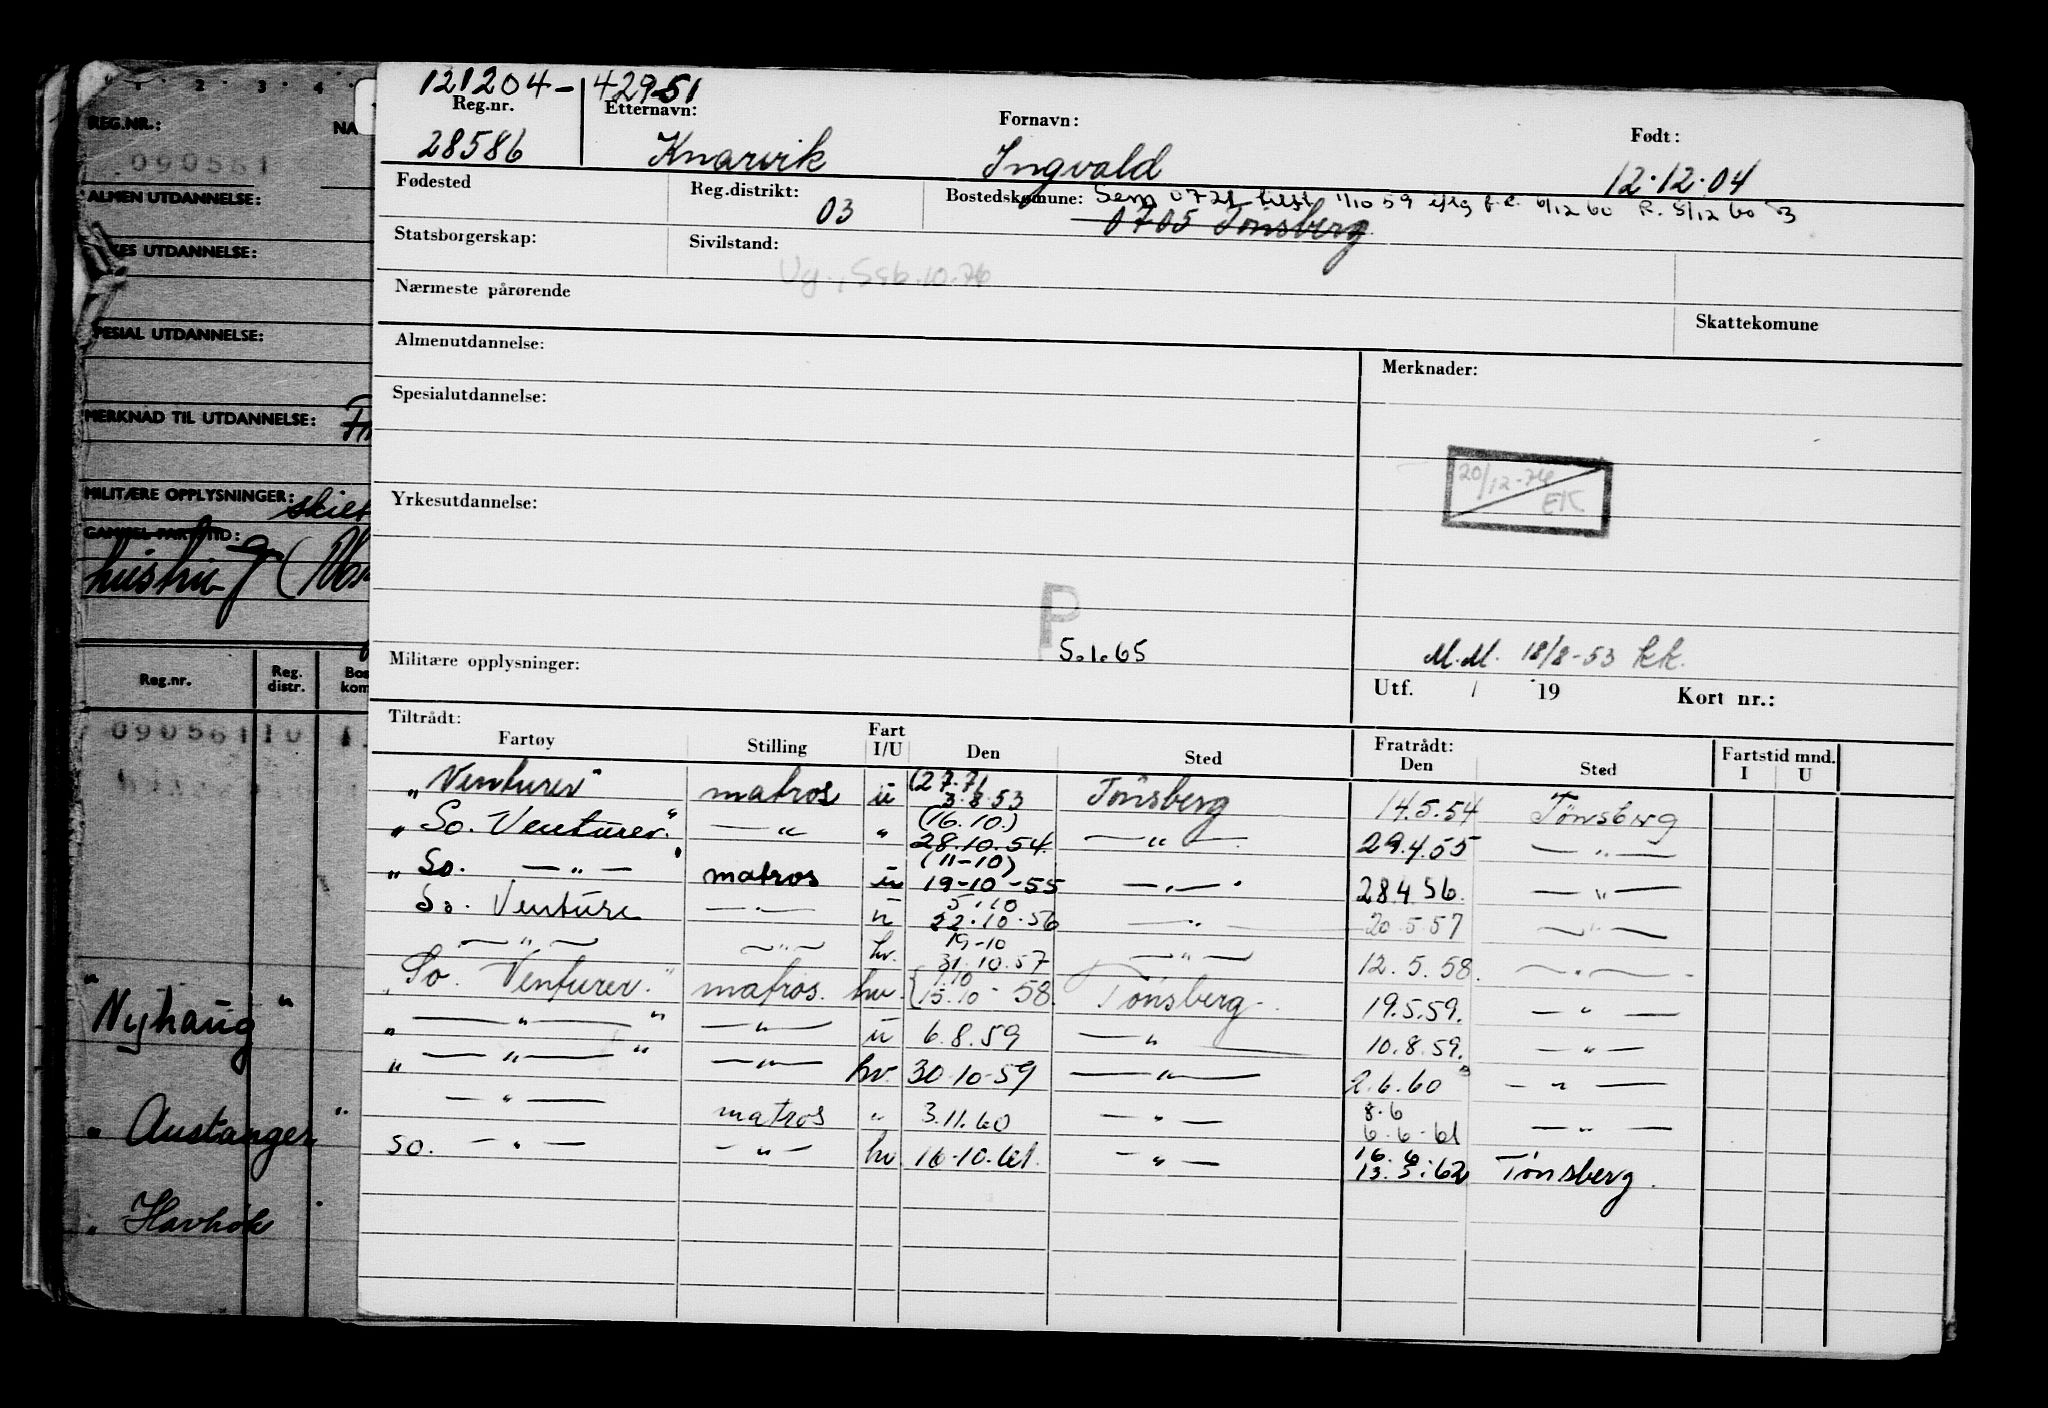 121204-42951
Reg.nr. Etternavn: Fornavn: Født:
28586 Knarvik Ingvald 12.12.04
Fødested Reg.distrikt: 03 Bostedskomune: Sem 0721 1/10 59 6/12 60 R. 5/12 60
0705 Tønsberg
Statsborgerskap: Sivilstand:
Nærmeste pårørende Skattekomune
Almenutdannelse: Merknader:
Spesialutdannelse:
20/12-76 EK
Yrkesutdannelse:
P
5.1.65
Militære opplysninger: M.M. 18/8-53 kk.
Utf. / 19 Kort nr.:
Tiltrådt: Fratrådt: Fartstid mnd.
Fartøy Stilling Fart I/U Den Sted Den Sted I U
"Venturer" matros u (27.7) 3.8.53 Tønsberg 14.5.54 Tønsberg
"So. Venturer." — " — " (16.10.) 28.10.54. — " — 29.4.55 — " —
"So. — " — " matros u (11-10) 19-10-55 — " — 28.4.56. — " —
So. Venture — " — u 5.10 22.10.56 — " — 20.5.57 — " —
— " — — " — hv. 19-10 31.10.57 — " — 12.5.58. — " —
"So. Venturer." matros. hv. 1.10 15.10-58. Tønsberg. 19.5.59. — " —
" — " — " — " — u 6.8.59 — " — 10.8.59. — " —
" — " — " — " — hv. 30.10.59 — " — 2.6.60 — " —
— " — matros " 3.11.60 — " — 8.6 6.6.61 — " —
so. — " — — " — hv 16-10.61. — " — 16.6 13.5.62 Tønsberg.
REG.NR.: NA
090561
ALMEN UTDANNELSE:
ES UTDANNELSE:
PESIAL UTDANNELSE:
MERKNAD TIL UTDANNELSE:
MILITÆRE OPPLYSNINGER:
GAMMEL FARTSTID:
Reg.nr. Reg. distr. Bos kom
090561 10 1
"Nyhaug"
"Austanger"
"Havhok